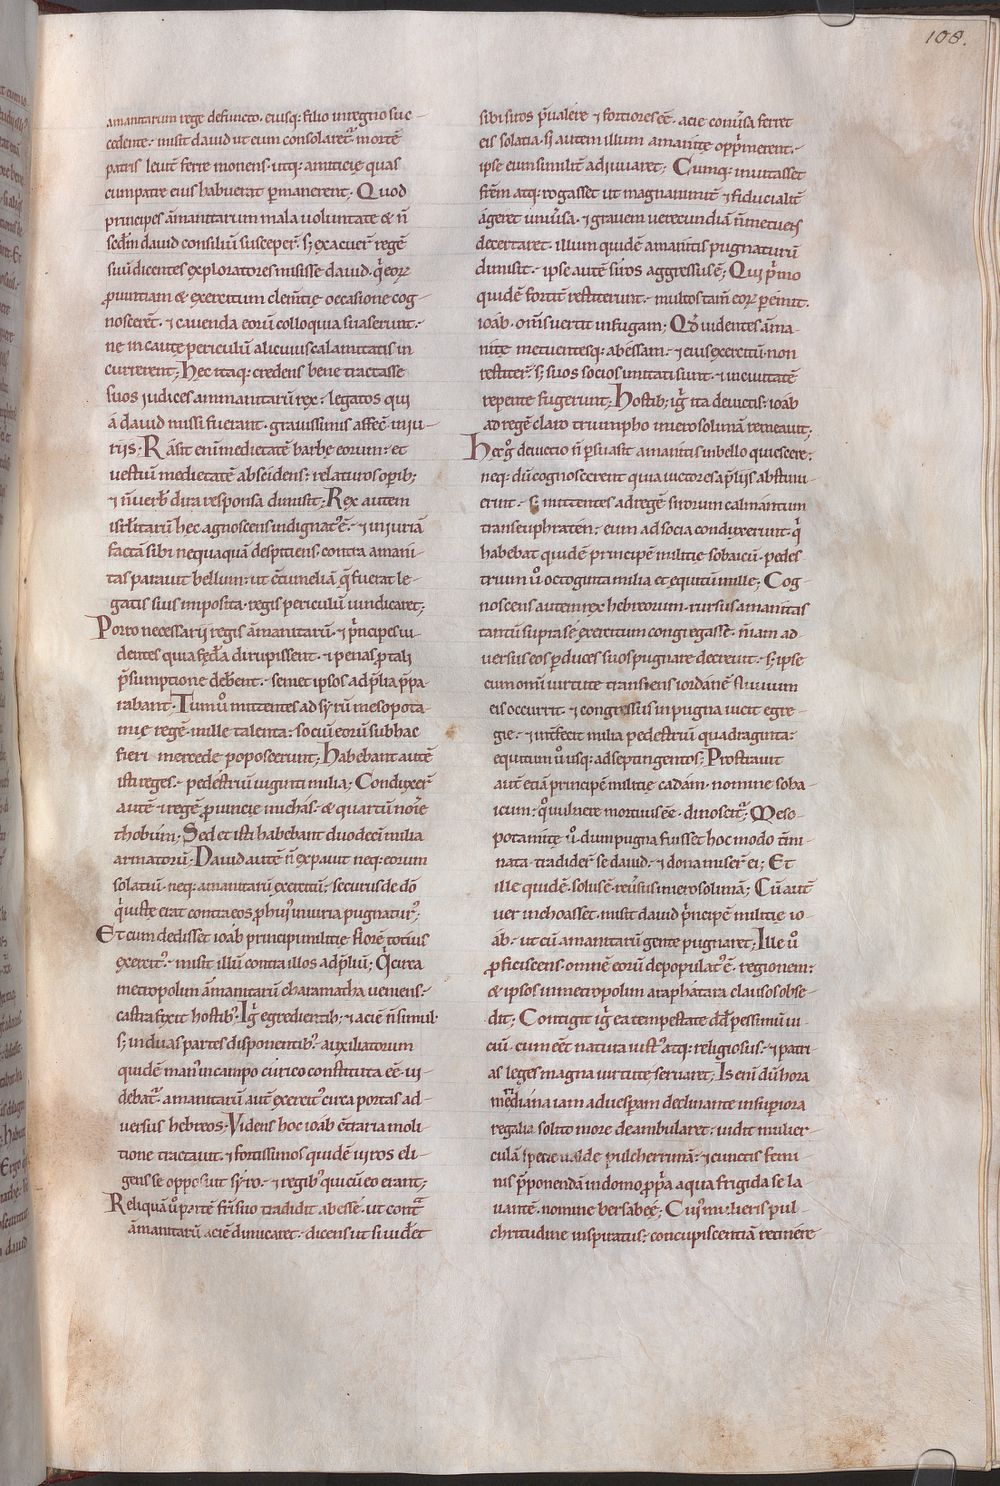 108.
amanitarum rege defuncto. eiusq; filio in regno suc-
cedente. misit dauid ut eum consolaret̃ mortẽ
patris leuit̃ ferre monens. utq; amiticię quas
cum patre eius habuerat permanerent. Quod
principes ãmanitarum mala uoluntate & ñ
sedm̃ dauid consiliũ susceper̃. s; exacuer̃ regẽ
suũ dicentes exploratores misisse dauid. q̃ eorꝝ
ꝓuintiam & exercitum clem̃tię occasione cog-
noscerẽt. & cauenda eorũ colloquia suaserunt.
ne incaute periculũ alicuius calamitatis in
currerent; Hec itaq; credens bene tractasse
suos judices ammanitarũ rex. legatos qui
á dauid missi fuerant. grauissimis affec̃ iniu-
riis. Rasit eni medietatẽ barbę eorum. et
uestiũ medietatẽ abscidens. relaturos op̃ib;
& ñ uerb̃ dira responsa dimisit; Rex autem
isrl̃itarũ hęc agnoscens indignat' ẽ. & iniuriã
factã sibi nequaquã despitiens. contra amani-
tas parauit bellum. ut c̃tumeliã q̃ fuerat le-
gatis suis imposita. regis periculũ uindicaret;
Porro necessarij regis ãmanitarũ. & p̃ncipes ui-
dentes quia fęd̃a dirupissent. & penas ꝓ tali
p̃sumptione deb̃ent. semet ipsos ad p̃lia p̃pa-
rabant. Tum ů mittentes ad syrũ mesopota-
mię regẽ. mille talenta. sociũ eorũ sub hac
fieri mercede poposcerunt; Habebant autẽ
isti reges. pedestriũ uiginti milia; Conduxer̃
autẽ & regẽ ꝓuincię michás. & quartũ noĩe
thobum. Sed et isti habebant duodecĩ milia
armatorũ. Dauid autẽ ñ expauit neq; eorum
solatiũ. neq; amanitarũ exercitũ. securus de dõ
q̃ iustę erat contra eos ꝓ hui' iniuria pugnatur';
Et cum dedisset ioáb principi militię florẽ totius
exercit'. misit illũ contra illos ad p̃lui; Q̃ circa
metropolim ãmanitarũ charamatha ueniens.
castra fixit hostib'. Ig̃ egredientib; & aciẽ ñ simul
s; in duas partes disponentib'. auxiliatorum
quidẽ man' in campo circo constituta eẽ ui-
debat̃. amanitarũ aut̃ exercit' circa portas ad-
uersus hebreos. Videns hoc ioáb c̃traria moli-
tione tractauit. & fortissimos quidẽ uiros eli-
gens se opposuit syro. & regib' qui cũ eo erant;
Reliquã ů partẽ fr̃i suo tradidit abessẽ. ut contᷓ
ãmanitarũ aciẽ dimicaret. dicens ut si uideret
sibi siros p̃ualere & fortiores eẽ. acie conůsa ferret
eis solatia. si autem illum amanitę opp̃merent.
ipse eum similit̃ adiuuaret; Cumq; inuitasset
fr̃em atq; rogasset ut magnanimit̃ & fiducialit̃
ageret uniůsa. & grauem uerecundiã ñ metuens
decertaret. illum quidẽ amanitis pugnaturũ
dimisit. ipse autẽ siros aggressus ẽ; Qui p̃mo
quidẽ fortit̃ restiterunt. multos tam̃ eorꝝ peĩmit.
ioáb. om̃s uertit in fugam; Qđ uidentes ãma-
nitę metuentesq; abessam. & eius exercitũ. non
restiter̃. s; suos socios imitati sunt. & in ciuitatẽ
repente fugerunt; Hostib; ig̃ ita deuictis. ioáb
ad regẽ claro triumpho in ierosolimã remeauit;
Hec g̊ deuictio ñ psuasit amanitis in bello quiescere.
neq; dũ cognoscerent quia uictores a p̃lijs abstinu-
erint. s; mittentes ad regẽ sirorum calmántum
trans euphratén. eum ad socia conduxerunt. q̃
habebat quidẽ principẽ militię sobaicũ. pedes
trium ů octoginta milia et equitũ mille; Cog-
noscens autem rex hebreorum. rursus amanitas
tantũ supra sé exercitum congregasse. ñ iam ad-
uersus eos per duces suos pugnare decreuit. s; ipse
cum omni uirtute transiens iordánẽ fluuium
eis occurrit. & congressus in pugna uicit egre-
gię. & int̃fecit milia pedestriũ quadraginta.
equitum ů usq; ad septingentos; Prostrauit
aut̃ etiã principẽ militię cadám. nomine soba-
icum. q̊ uulnere mortuus eẽ. dinoscit̃; Meso-
potamitę ů. dum pugna fuisset hoc modo t̃mi-
nata. tradider̃ se dauid. & dona miser̃ ei; Et
ille quidẽ. solus ẽ reůsus in ierosolimã; Cũ aut̃
uer inchoasset. misit dauid p̃ncipẽ militię io-
áb. ut cũ amanitarũ gente pugnaret; Ille ů
ꝓficiscens. omnẽ eorũ depopulat' ẽ. regionem.
& ipsos in metropolim araphátara clausos obse-
dit; Contigit ig̃ ea tempestate dd̃ pessimũ ui-
ciũ. cum eẽt natura iust' atq; religiosus. & patri-
as leges magna uirtute seruaret; Is eni dũ hora
mr̃ediana iam ad uesperam declinante in supiora
regalia solito more deambularet. uidit mulier-
culã specie ualde pulcherrimã. & cunctis femi-
nis p̃ponendã in domo ꝓp̃a aqua frigida se la
uantẽ. nomine bersabeę; Cui' mulieris pul-
chritudine inspiratus. concupiscentiã retinére